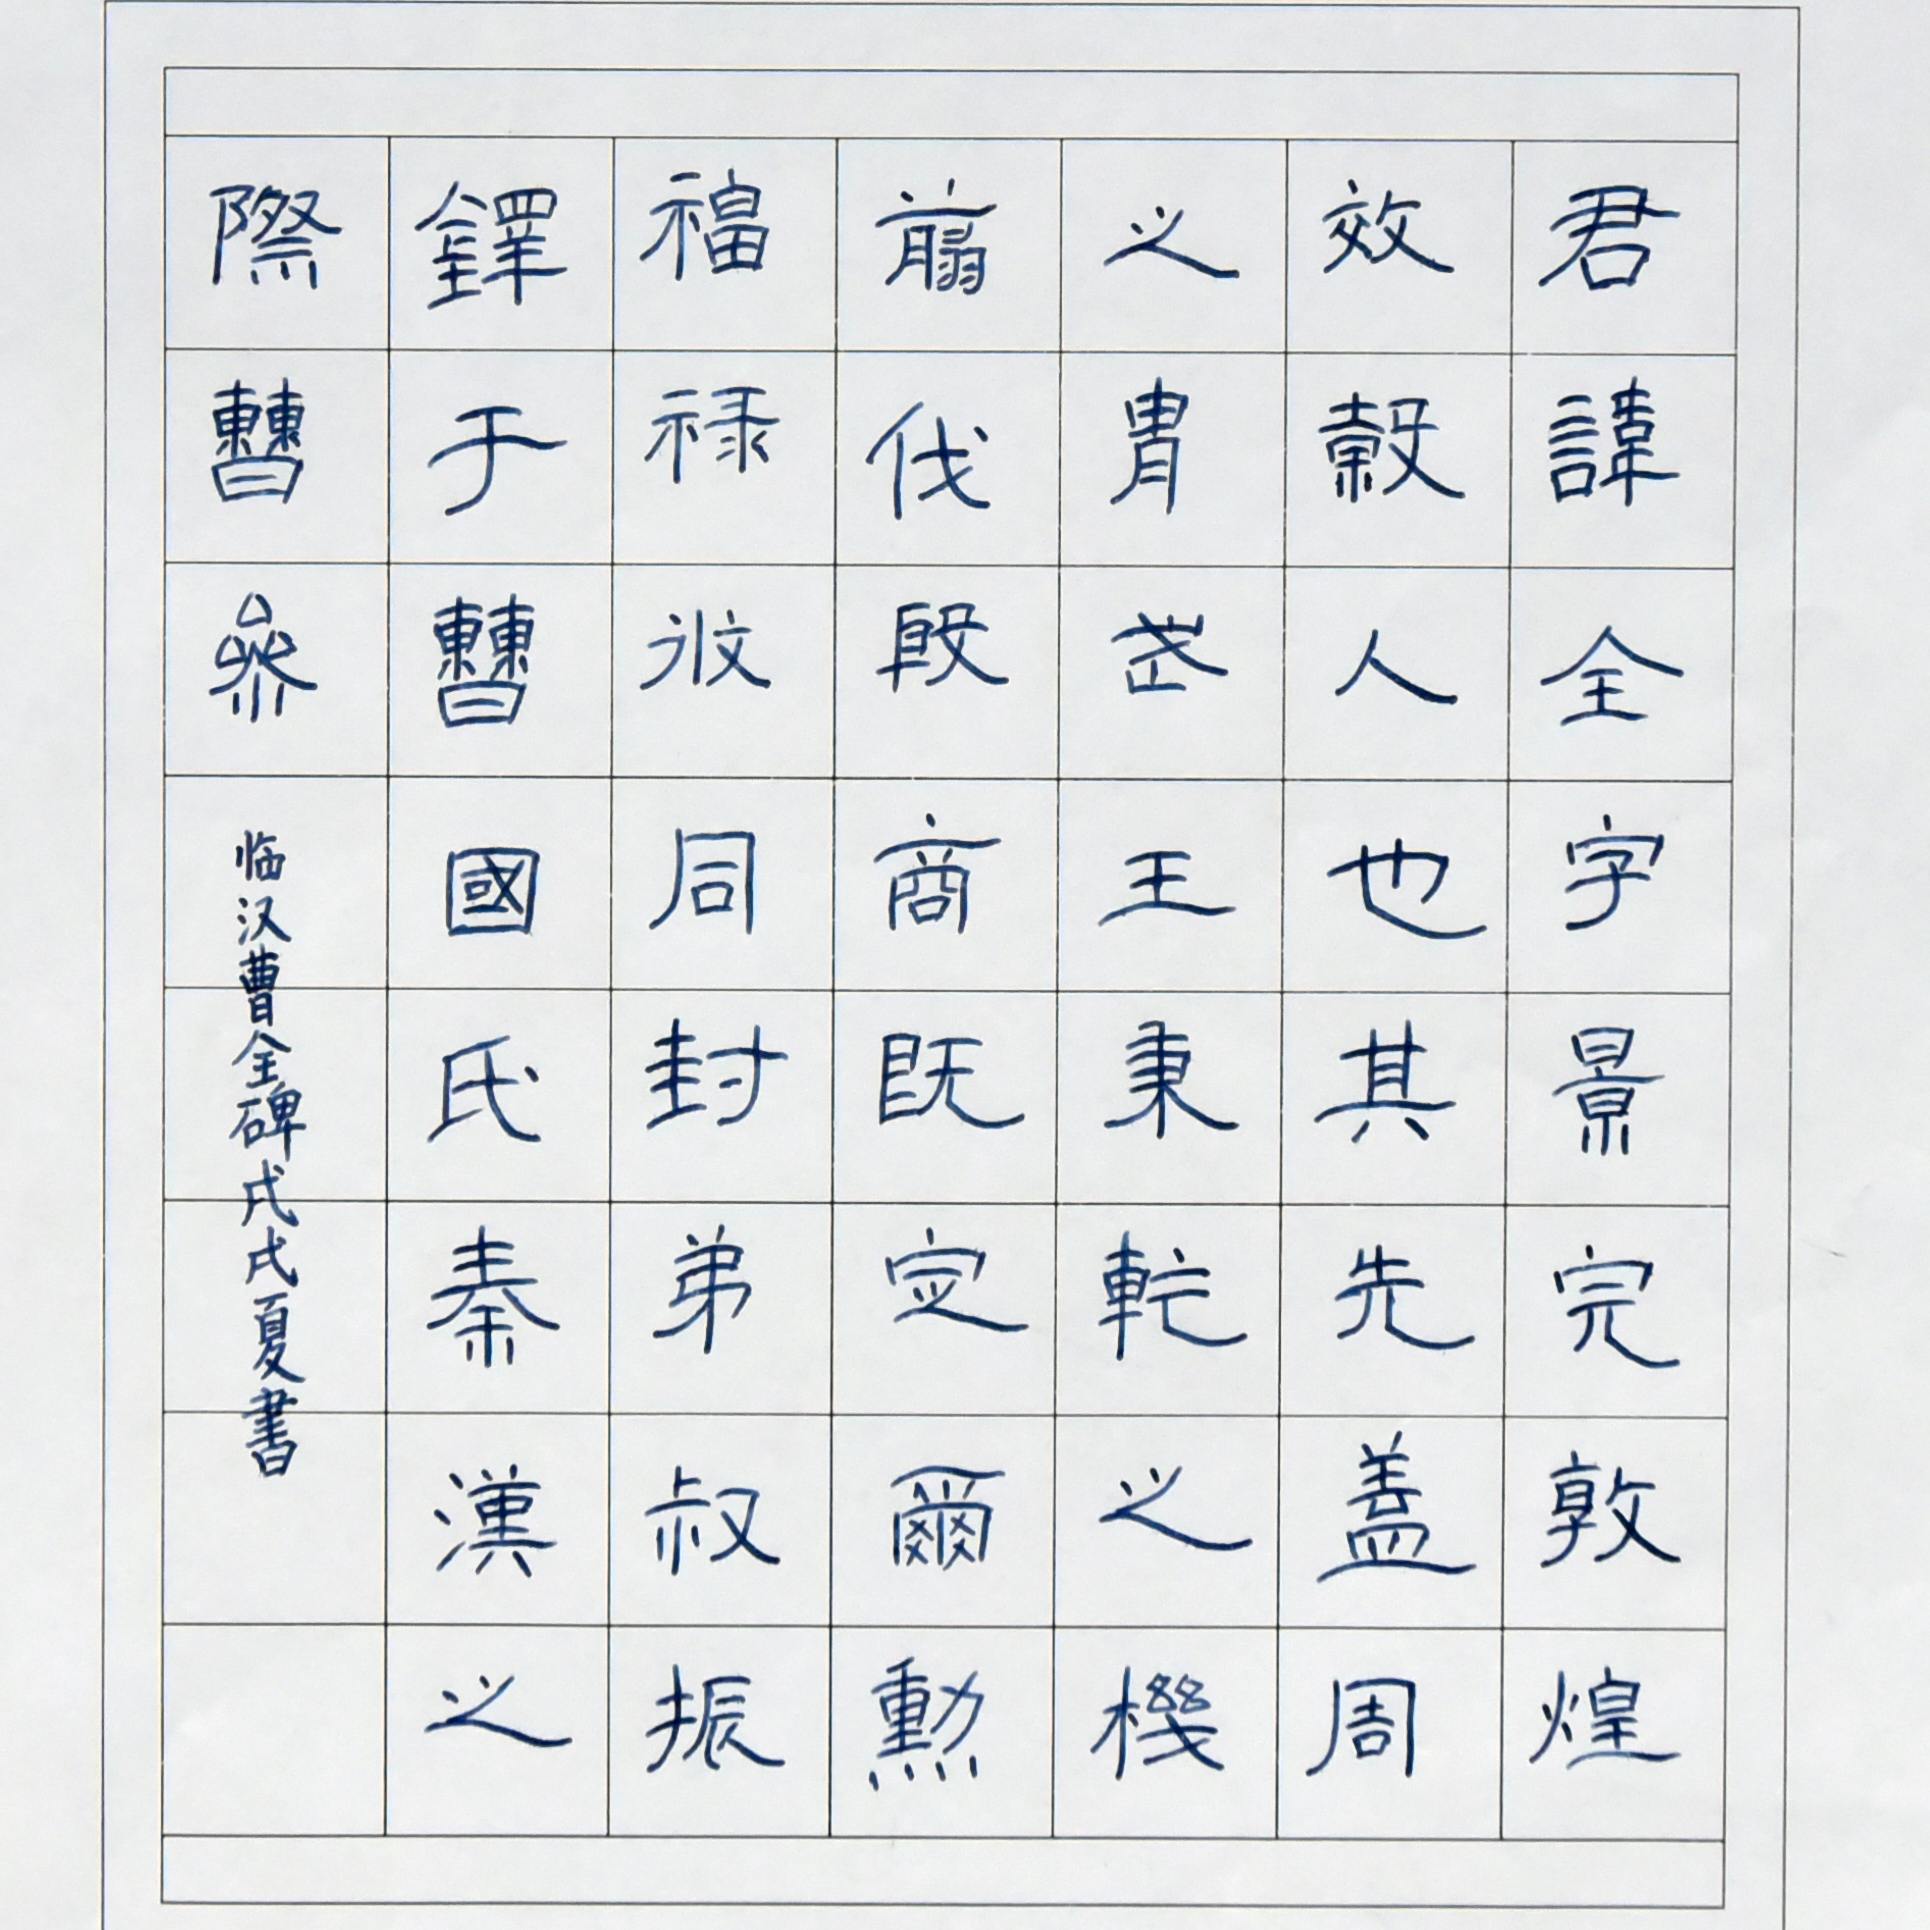 君諱全字景完敦煌
效穀人也其先盖周
之胄武王秉乾之機
翦伐殷商既定爾勳
福禄攸同封弟叔振
鐸于曹國氏秦漢之
際曹參
临汉曹全碑戊戌夏書